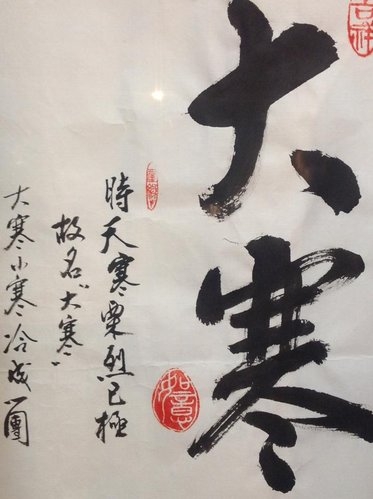 大寒
時天寒栗烈已極
故名"大寒"
大寒小寒冷成一團
吉祥
如意